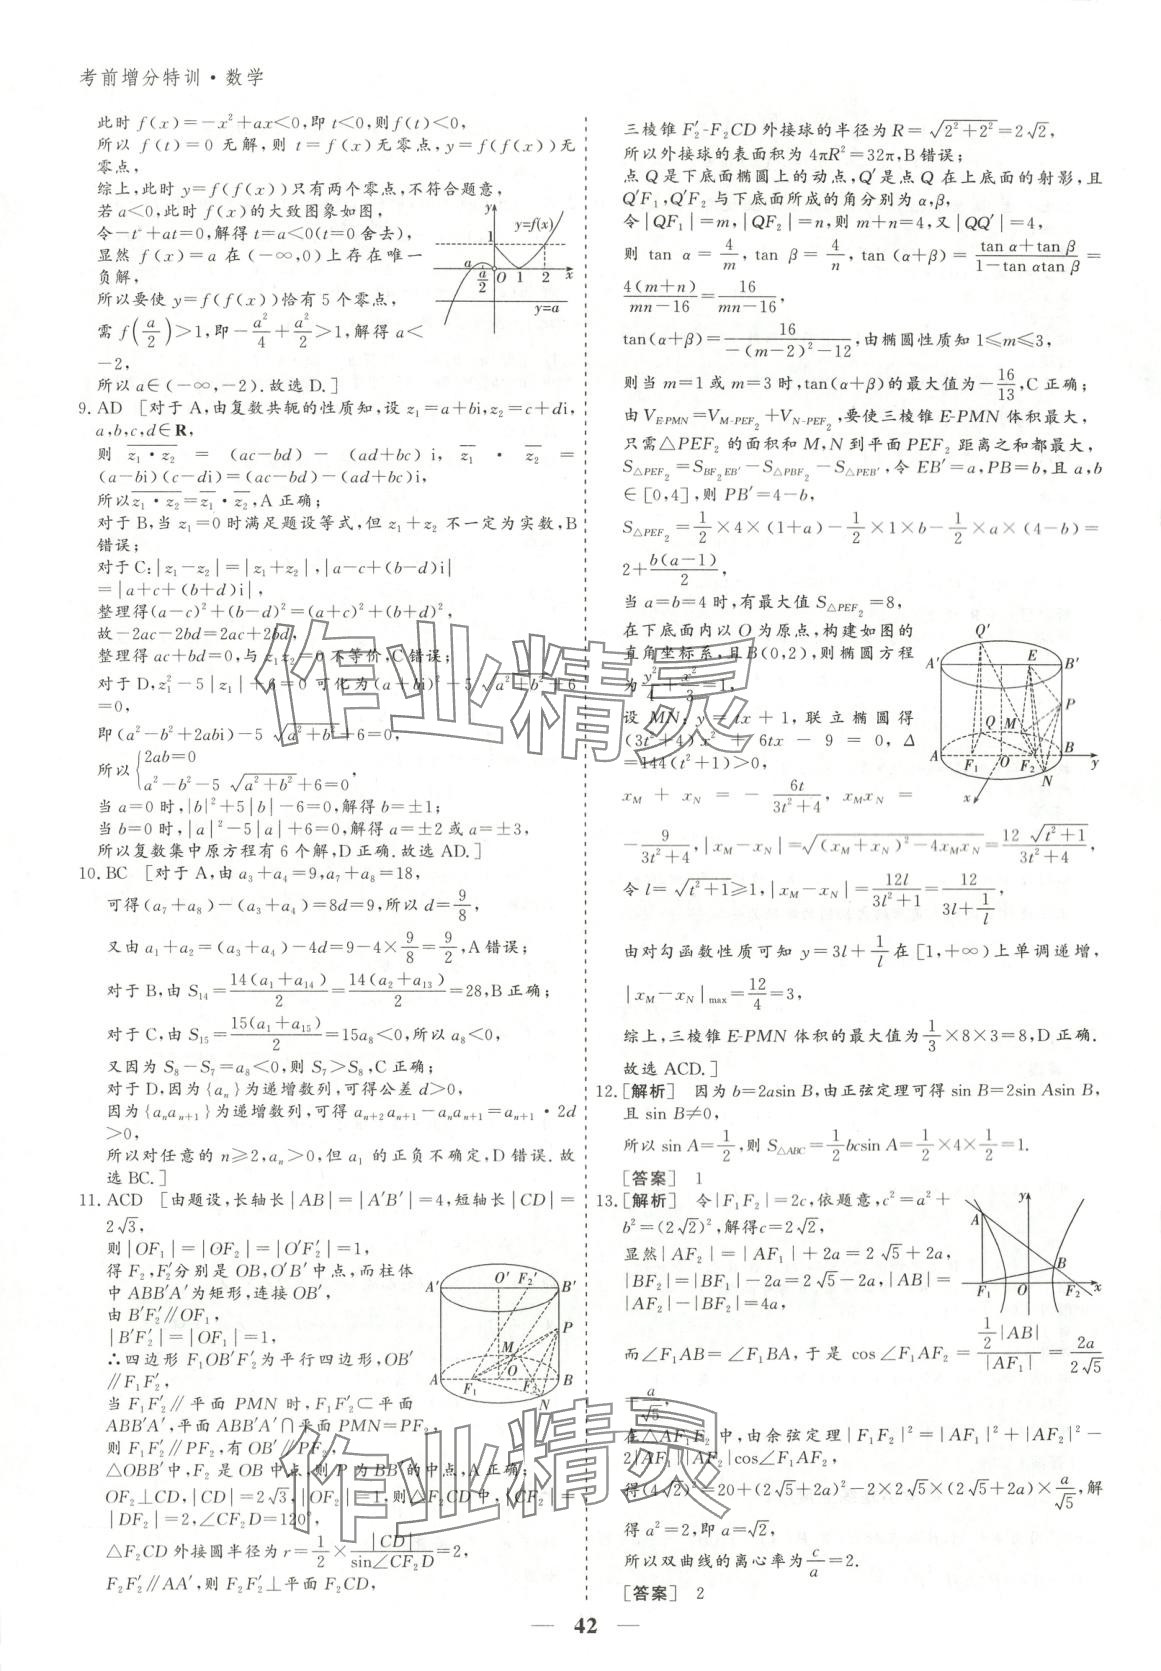 考前增分特训·数学
此时 f(x)=-x²+ax<0,即 t<0,则f(t)<0,
所以 f(t)=0 无解,则 t=f(x)无零点,y=f(f(x))无
零点,
综上,此时 y=f(f(x))只有两个零点,不符合题意,
若 a<0,此时 f(x)的大致图象如图,
令-t²+at=0,解得t=a<0(t=0 舍去),
显然 f(x)=a 在(-∞,0)上存在唯一
负解,
所以要使 y=f(f(x))恰有 5 个零点,
需 f(a/2)>1,即-a²/4+a²/2>1,解得 a<
-2,
所以 a∈(-∞,-2).故选 D.]
y
y=f(x)
1
a
a/2
O 1 2 x
y=a
9. AD [对于 A,由复数共轭的性质知,设 z₁=a+bi,z₂=c+di,
a,b,c,d∈R,
则 \overline{z₁·z₂} = (ac-bd)-(ad+bc)i, \overline{z₁} · \overline{z₂} =
(a-bi)(c-di)=(ac-bd)-(ad+bc)i,
所以\overline{z₁·z₂}=\overline{z₁}·\overline{z₂},A 正确;
对于 B,当 z₁=0 时满足题设等式,但 z₁+z₂ 不一定为实数,B
错误;
对于 C:|z₁-z₂|=|z₁+z₂|,|a-c+(b-d)i|
=|a+c+(b+d)i|,
整理得(a-c)²+(b-d)²=(a+c)²+(b+d)²,
故-2ac-2bd=2ac+2bd,
整理得 ac+bd=0,与 z₁z₂=0 不等价,C 错误;
对于 D,z₁²-5|z₁|+6=0 可化为(a+bi)²-5√(a²+b²)+6
=0,
即(a²-b²+2abi)-5√(a²+b²)+6=0,
所以{2ab=0
a²-b²-5√(a²+b²)+6=0;
当 a=0 时,|b|²+5|b|-6=0,解得 b=±1;
当 b=0 时,|a|²-5|a|+6=0,解得 a=±2 或 a=±3,
所以复数集中原方程有 6 个解,D 正确.故选 AD.]
10. BC [对于 A,由 a₃+a₄=9,a₇+a₈=18,
可得(a₇+a₈)-(a₃+a₄)=8d=9,所以 d=9/8,
又由 a₁+a₂=(a₃+a₄)-4d=9-4×9/8=9/2,A 错误;
对于 B,由 S₁₄=14(a₁+a₁₄)/2=14(a₂+a₁₃)/2=28,B 正确;
对于 C,由 S₁₅=15(a₁+a₁₅)/2=15a₈<0,所以 a₈<0,
又因为 S₈-S₇=a₈<0,则 S₇>S₈,C 正确;
对于 D,因为{aₙ}为递增数列,可得公差 d>0,
因为{aₙaₙ₊₁}为递增数列,可得 aₙ₊₂aₙ₊₁-aₙaₙ₊₁=aₙ₊₁·2d
>0,
所以对任意的 n≥2,aₙ>0,但 a₁ 的正负不确定,D 错误.故
选 BC.]
11. ACD [由题设,长轴长|AB|=|A′B′|=4,短轴长|CD|=
2√3,
则|OF₁|=|OF₂|=|O′F₂′|=1,
得 F₂,F₂′分别是 OB,O′B′中点,而柱体
中 ABB′A′为矩形,连接 OB′,
由 B′F₂′∥OF₁,
|B′F₂′|=|OF₁|=1,
∴四边形 F₁OB′F₂′为平行四边形,OB′
∥F₁F₂′,
当 F₁F₂′∥平面 PMN 时,F₁F₂′⊂平面
ABB′A′,平面 ABB′A′∩平面 PMN=PF₂,
则 F₁F₂′∥PF₂,有 OB′∥PF₂,
△OBB′中,F₂ 是 OB 中点,则 P 为 BB′的中点,A 正确;
OF₂⊥CD,|CD|=2√3,|OF₂|=1,则△CF₂D 中,|CF₂|=
|DF₂|=2,∠CF₂D=120°,
△F₂CD 外接圆半径为 r=1/2×|CD|/sin∠CF₂D=2,
F₂F₂′∥AA′,则 F₂F₂′⊥平面 F₂CD,
A′ O′ F₂′ B′
P
M
A F₁ O F₂ B
N
三棱锥 F₂′-F₂CD 外接球的半径为 R=√(2²+2²)=2√2,
所以外接球的表面积为 4πR²=32π,B 错误;
点 Q 是下底面椭圆上的动点,Q′是点 Q 在上底面的射影,且
Q′F₁,Q′F₂ 与下底面所成的角分别为 α,β,
令|QF₁|=m,|QF₂|=n,则 m+n=4,又|QQ′|=4,
则 tan α=4/m,tan β=4/n,tan(α+β)=(tan α+tan β)/(1-tan αtan β)=
4(m+n)/(mn-16)=16/(mn-16),
tan(α+β)=16/(-(m-2)²-12),由椭圆性质知 1≤m≤3,
则当 m=1 或 m=3 时,tan(α+β)的最大值为-16/13,C 正确;
由 V_{E-PMN}=V_{M-PEF₂}+V_{N-PEF₂},要使三棱锥 E-PMN 体积最大,
只需△PEF₂ 的面积和 M,N 到平面 PEF₂ 距离之和都最大,
S_{△PEF₂}=S_{BF₂EB′}-S_{△PBF₂}-S_{△PEB′},令 EB′=a,PB=b,且 a,b
∈[0,4],则 PB′=4-b,
S_{△PEF₂}=1/2×4×(1+a)-1/2×1×b-1/2×a×(4-b)=
2+b(a-1)/2,
当 a=b=4 时,有最大值 S_{△PEF₂}=8,
在下底面内以 O 为原点,构建如图的
直角坐标系,且 B(0,2),则椭圆方程
为y²/4+x²/3=1,
设 MN: y=tx+1,联立椭圆得
(3t²+4)x²+6tx-9=0,Δ
=144(t²+1)>0,
x_M+x_N=-6t/(3t²+4),x_Mx_N=
-9/(3t²+4),|x_M-x_N|=√((x_M+x_N)²-4x_Mx_N)=12√(t²+1)/(3t²+4),
令 l=√(t²+1)≥1,|x_M-x_N|=12l/(3l²+1)=12/(3l+1/l),
由对勾函数性质可知 y=3l+1/l在[1,+∞)上单调递增,
|x_M-x_N|max=12/4=3,
综上,三棱锥 E-PMN 体积的最大值为1/3×8×3=8,D 正确.
故选 ACD.]
Q′
A′ E B′
P
Q M
A F₁ O F₂ B y
N
x
12. [解析] 因为 b=2asin B,由正弦定理可得 sin B=2sin Asin B,
且 sin B≠0,
所以 sin A=1/2,则 S_{△ABC}=1/2bcsin A=1/2×4×1/2=1.
[答案] 1
13. [解析] 令|F₁F₂|=2c,依题意,c²=a²+
b²=(2√2)²,解得c=2√2,
显然|AF₂|=|AF₁|+2a=2√5+2a,
|BF₂|=|BF₁|-2a=2√5-2a,|AB|=
|AF₂|-|BF₂|=4a,
而∠F₁AB=∠F₁BA,于是 cos∠F₁AF₂=(1/2|AB|)/|AF₁|=2a/2√5
=a/√5,
在△AF₁F₂ 中,由余弦定理|F₁F₂|²=|AF₁|²+|AF₂|²-
2|AF₁||AF₂|cos∠F₁AF₂,
得(4√2)²=20+(2√5+2a)²-2×2√5×(2√5+2a)×a/√5,解
得 a²=2,即 a=√2,
所以双曲线的离心率为c/a=2.
[答案] 2
y
A
B
F₁ O F₂ x
作业精灵
作业精灵
42